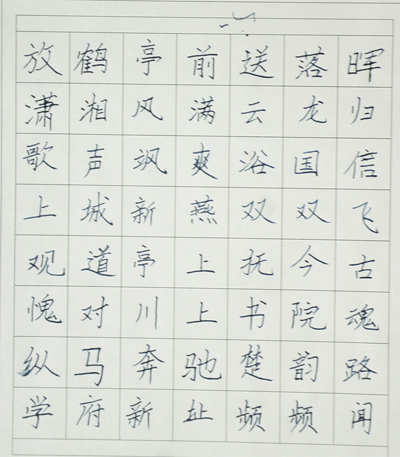 放鹤亭前送落晖
潇湘风满云龙归
歌声飒爽浴国信
上城新燕双双飞
观道亭上抚今古
愧对川上书院魂
纵马奔驰楚韵路
学府新址频频闻